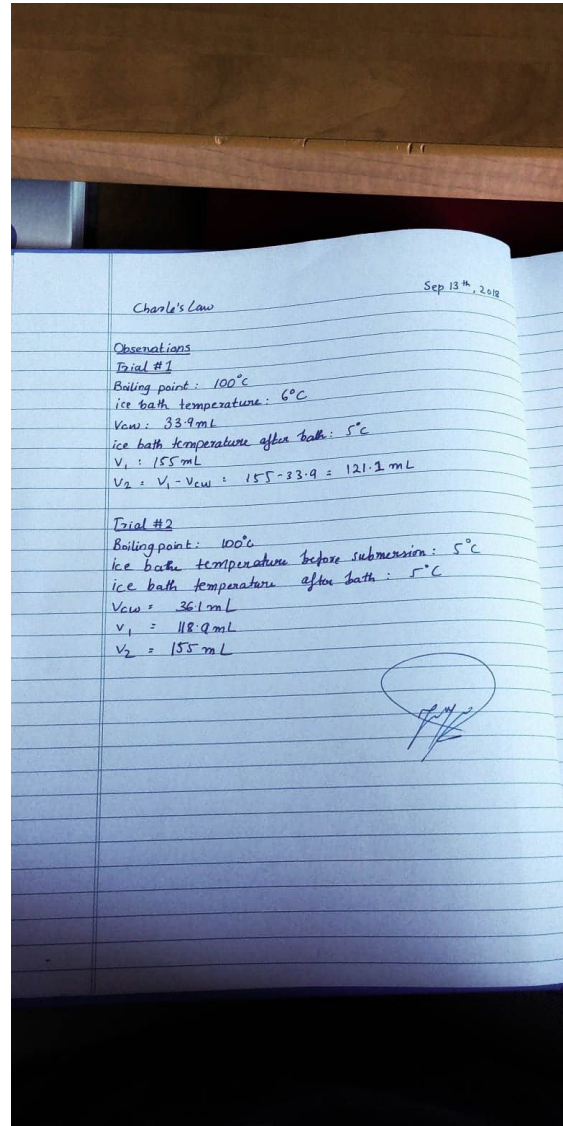 Sep 13th, 2018
Charle's Law
Observations
Trial #1
Boiling point : 100°C
ice bath temperature : 6°C
Vcw : 33.9mL
ice bath temperature after bath : 5°C
V₁ : 155mL
V₂ = V₁ - Vcw = 155-33.9 = 121.1 mL
Trial #2
Boiling point : 100°C
ice bath temperature before submersion : 5°C
ice bath temperature after bath : 5°C
Vcw = 36.1mL
V₁ = 118.9mL
V₂ = 155 mL